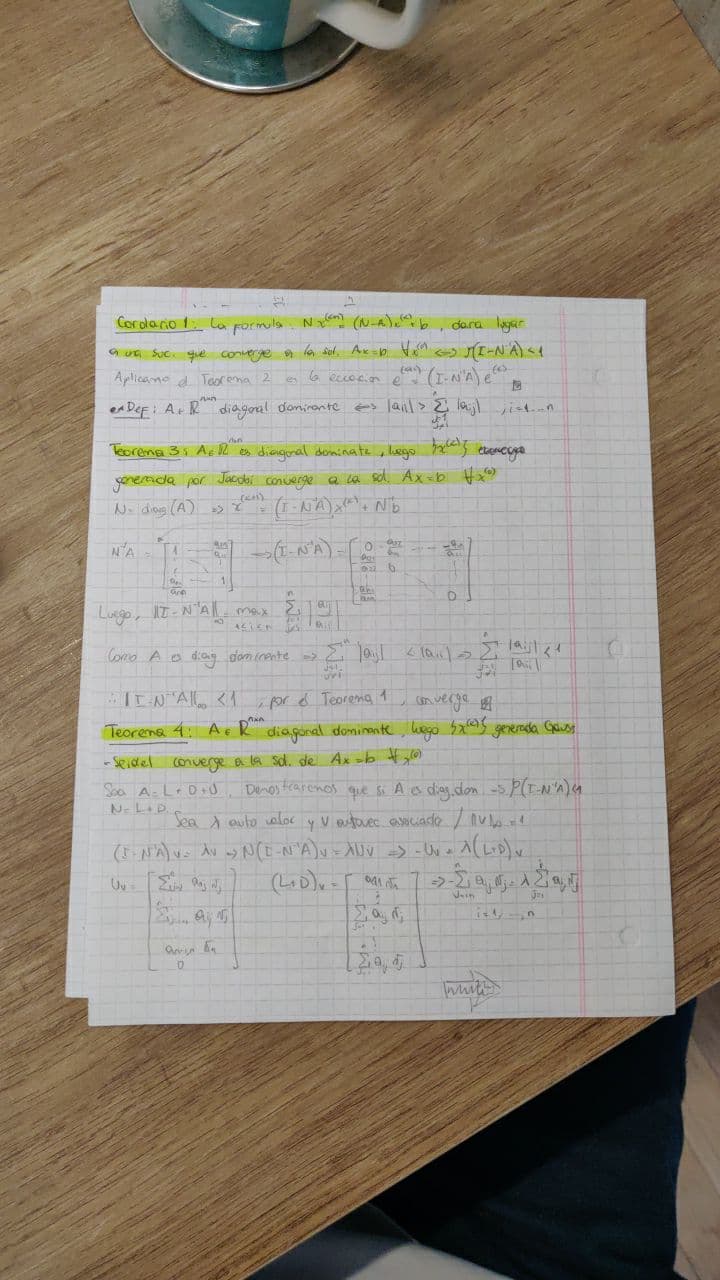 Corolario 1: La formula: N x^(k+1) = (N-A)x^(k) + b, dara lugar
a una suc. que converge a la sol. Ax=b ∀x^(0) <=> ρ(I-N⁻¹A) < 1
Aplicamo el Teorema 2 en la ecuacion e^(k+1) = (I-N⁻¹A) e^(k)
Def: A ∈ R^nxn diagonal dominante <=> |aii| > Σ_{j=1, j≠i}^n |aij| , i=1...n
Teorema 3: A∈R^nxn es diagonal dominate, luego {x^(k)}
generada por Jacobi converge a la sol. Ax=b ∀x^(0)
N= diag(A) => x^(k+1) = (I-N⁻¹A)x^(k) + N⁻¹b
N⁻¹A = [ 1 ... 1 ] → (I-N⁻¹A) = [ 0 ... 0 ]
Luego, ||I-N⁻¹A||∞ = max_{1≤i≤n} Σ_{j=1, j≠i}^n |aij/aii|
Como A es diag. dominante => Σ_{j=1, j≠i}^n |aij| < |aii| => Σ_{j=1, j≠i}^n |aij|/|aii| < 1
∴ ||I-N⁻¹A||∞ < 1 , por el Teorema 1, converge
Teorema 4: A ∈ R^nxn diagonal dominante, luego {x^(k)} generada Gauss
-Seidel converge a la sol. de Ax=b ∀x^(0)
Sea A = L+D+U. Demostraremos que si A es diag.dom → ρ(I-N⁻¹A)<1
N= L+D
Sea λ auto valor y v autovec asociado / ||v||∞ = 1
(I-N⁻¹A)v = λv → N(I-N⁻¹A)v = λNv => -Uv = λ(L+D)v
Uv = [ Σ aij vj ... 0 ] (L+D)v = [ a11 v1 ... Σ aij vj ] => -Σ_{j=i+1}^n aij vj = λ Σ_{j=1}^i aij vj
i=1,...,n